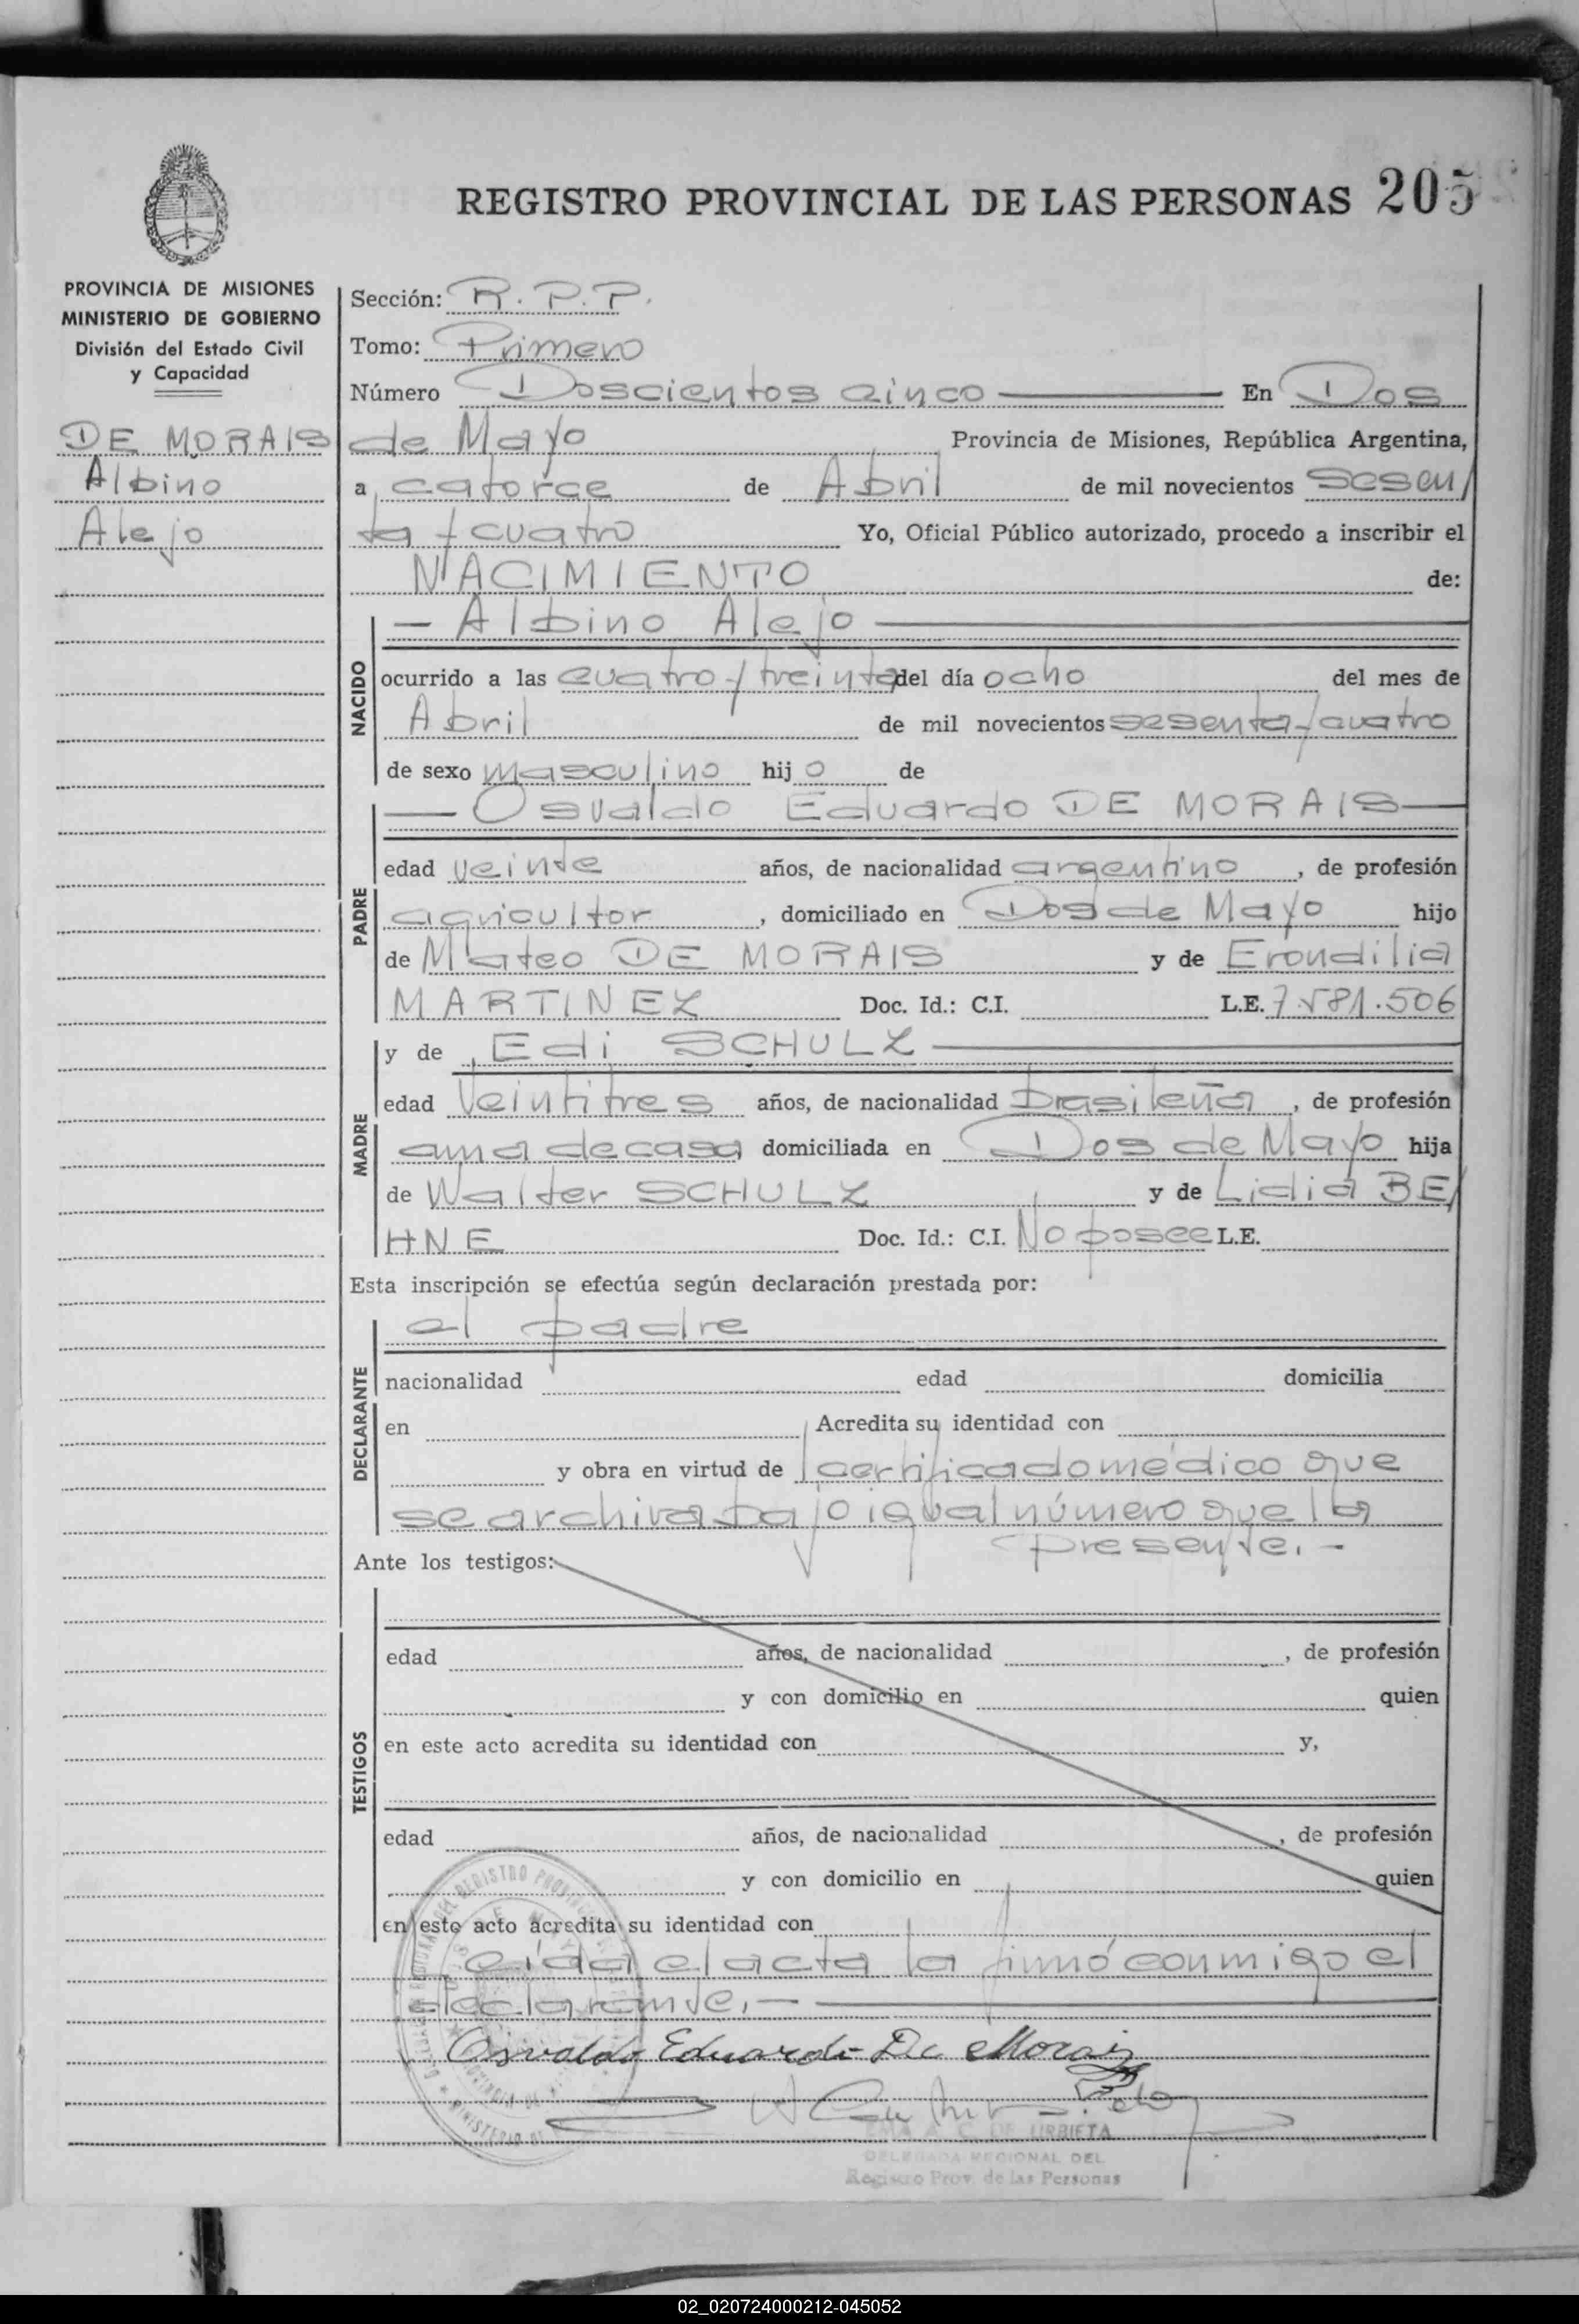 REGISTRO PROVINCIAL DE LAS PERSONAS 205
PROVINCIA DE MISIONES
MINISTERIO DE GOBIERNO
División del Estado Civil
y Capacidad
DE MORAIS
Albino
Alejo
Sección: R.P.P.
Tomo: Primero
Número Doscientos cinco En Dos
de Mayo Provincia de Misiones, República Argentina,
a catorce de Abril de mil novecientos sesen/
ta y cuatro Yo, Oficial Público autorizado, procedo a inscribir el
NACIMIENTO de:
— Albino Alejo —
NACIDO
ocurrido a las cuatro y treinta del día ocho del mes de
Abril de mil novecientos sesenta y cuatro
de sexo masculino hijo de
— Osvaldo Eduardo DE MORAIS —
PADRE
edad veinte años, de nacionalidad argentino, de profesión
agricultor, domiciliado en Dos de Mayo hijo
de Mateo DE MORAIS y de Erondilia
MARTINEZ Doc. Id.: C.I. L.E. 7.581.506
y de Edi SCHULZ —
MADRE
edad Veintitres años, de nacionalidad brasileña, de profesión
ama de casa domiciliada en Dos de Mayo hija
de Walter SCHULZ y de Lidia BE/
HNE Doc. Id.: C.I. No posee L.E.
Esta inscripción se efectúa según declaración prestada por:
el padre
DECLARANTE
nacionalidad edad domicilia
en Acredita su identidad con
y obra en virtud de certificado médico que
se archiva bajo igual número que la
presente.-
Ante los testigos:
TESTIGOS
edad años, de nacionalidad , de profesión
y con domicilio en quien
en este acto acredita su identidad con y,
edad años, de nacionalidad , de profesión
y con domicilio en quien
en este acto acredita su identidad con
Leída el acta la firmó conmigo el
declarante.-
Osvaldo Eduardo De Morais
EMA A. C. DE URBIETA
DELEGADA REGIONAL DEL
Registro Prov. de las Personas
02_020724000212-045052